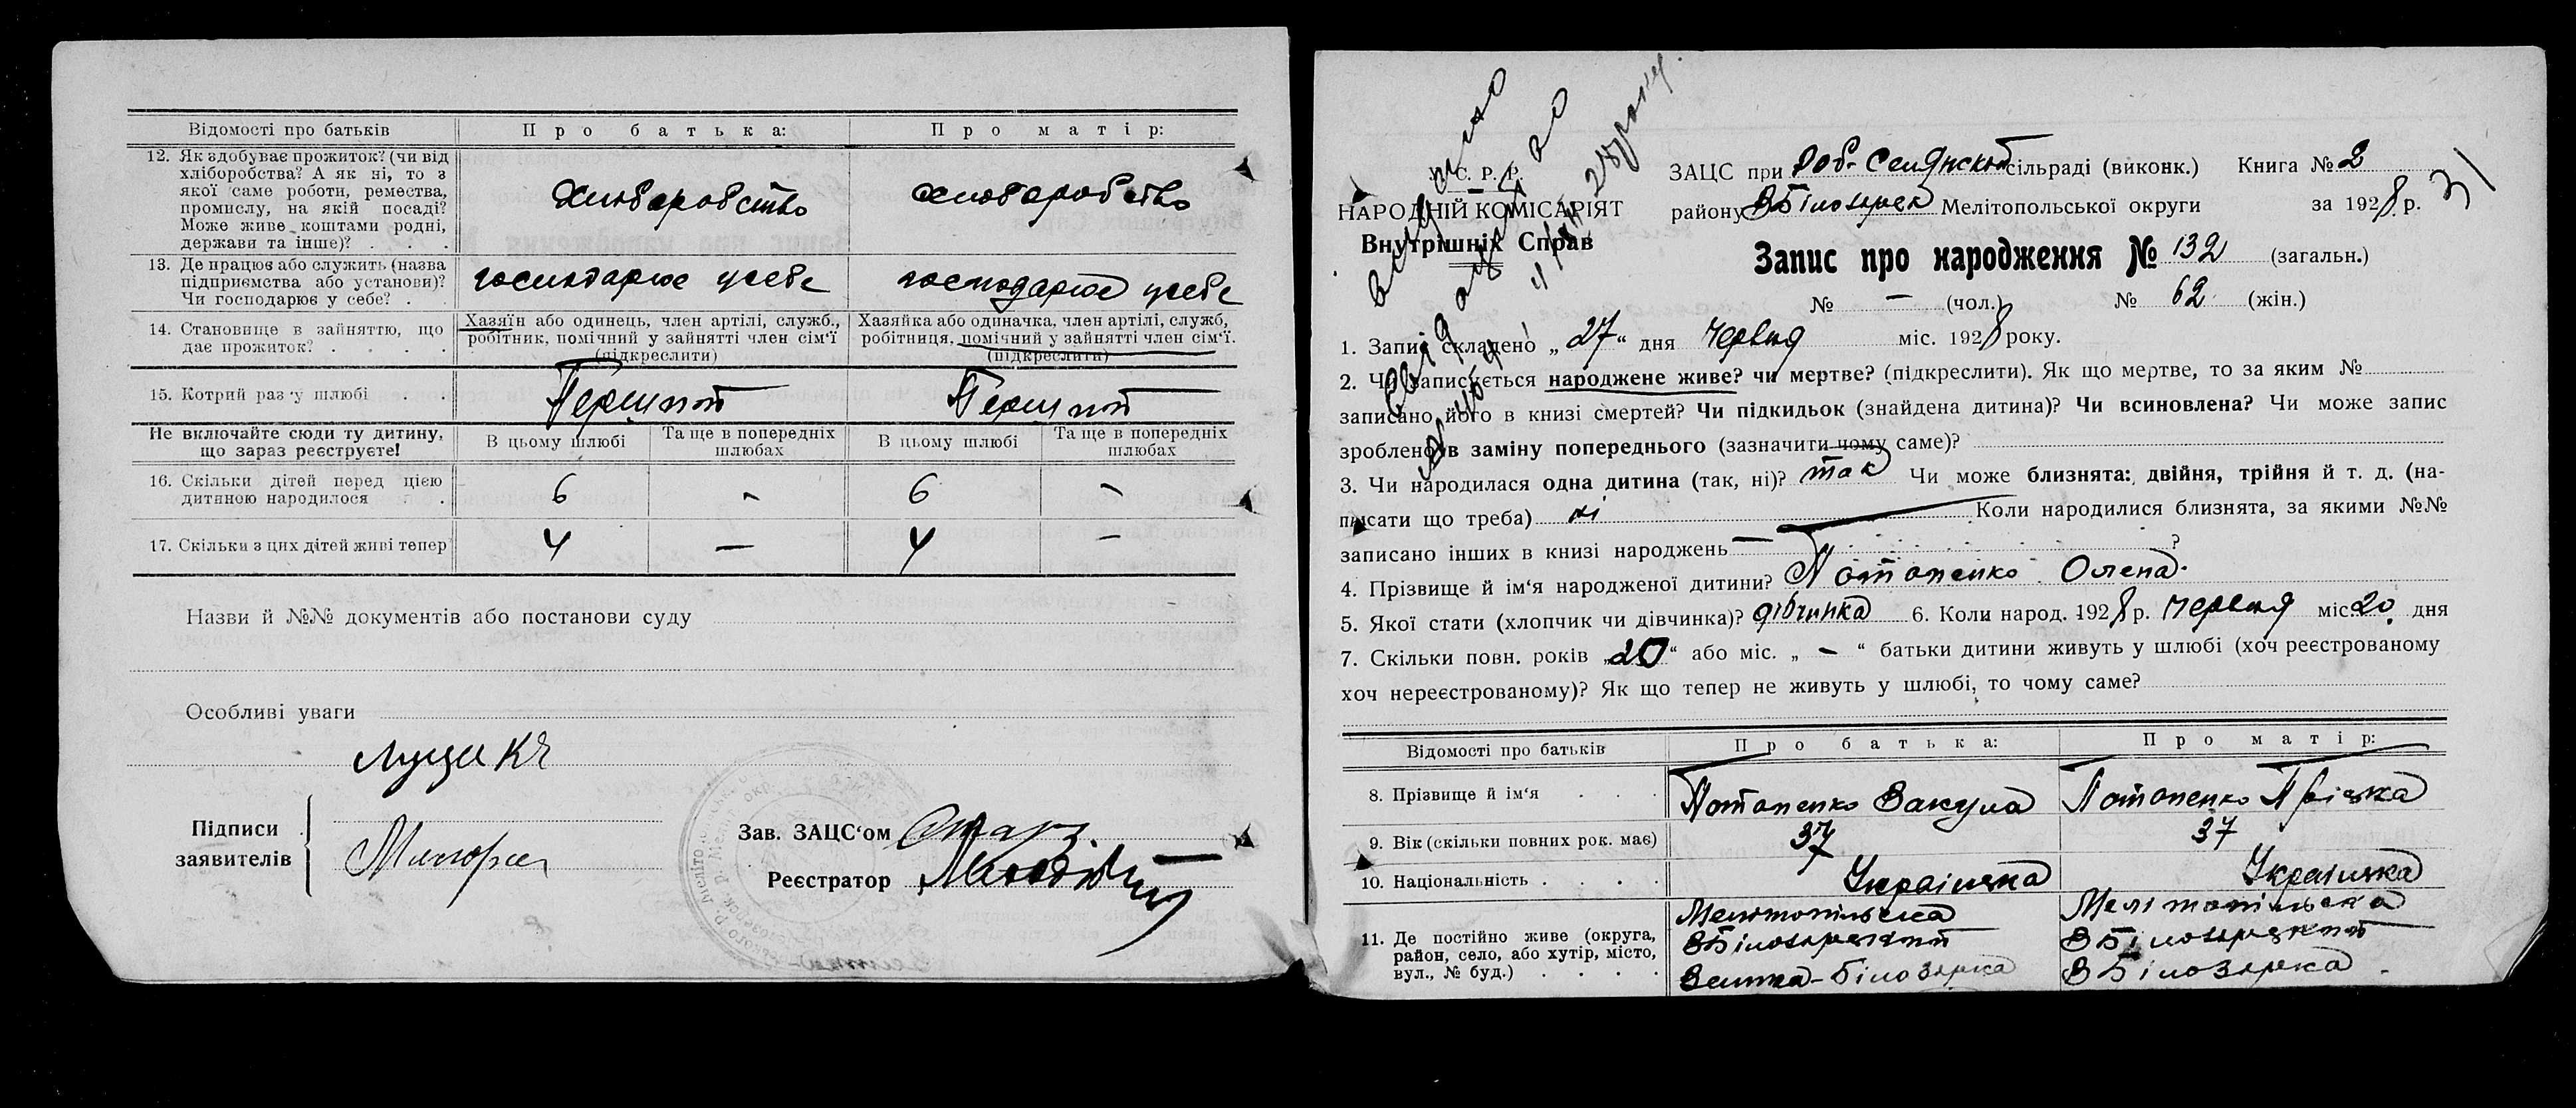 Відомості про батьків Про батька: Про матір:
12. Як здобуває прожиток? (чи від
хліборобства? А як ні, то з
якої саме роботи, ремества,
промислу, на якій посаді?
Може живе коштами родні,
держави та інше)? . . .
хліборобство хліборобство
13. Де працює або служить (назва
підприємства або установи)?
Чи господарює у себе? .
господарює у себе господарює у себе
14. Становище в зайняттю, що
дає прожиток? . . . .
Хазяїн або одинець, член артілі, служб.,
робітник, помічний у зайнятті член сім'ї
(підкреслити)
Хазяйка або одиначка, член артілі, служб,
робітниця, помічний у зайнятті член сім'ї.
(підкреслити)
15. Котрий раз у шлюбі . . Перший Перший
Не включайте сюди ту дитину,
що зараз реєструєте!
В цьому шлюбі Та ще в попередніх шлюбах В цьому шлюбі Та ще в попередніх шлюбах
16. Скільки дітей перед цією
дитиною народилося . .
6 - 6 -
17. Скільки з цих дітей живі тепер 4 — 4 —
Назви й №№ документів або постанови суду
Особливі уваги
Підписи
заявителів
Зав. ЗАЦС'ом
Реєстратор
У. С. Р. Р.
НАРОДНІЙ КОМІСАРІЯТ
Внутрішніх Справ
ЗАЦС при сільраді (виконк.) Книга № 2
району В Білозірск Мелітопольської округи за 1928 р.
31
Запис про народження № 132 (загальн.)
№ — (чол.) № 62 (жін.)
1. Запис складено „27" дня червня міс. 1928 року.
2. Чи записується народжене живе? чи мертве? (підкреслити). Як що мертве, то за яким №
записано його в книзі смертей? Чи підкидьок (знайдена дитина)? Чи всиновлена? Чи може запис
зроблено в заміну попереднього (зазначити чому саме)?
3. Чи народилася одна дитина (так, ні)? так Чи може близнята: двійня, трійня й т. д. (на-
писати що треба) ні Коли народилися близнята, за якими №№
записано інших в книзі народжень — ?
4. Прізвище й ім'я народженої дитини? Потопенко Олена
5. Якої стати (хлопчик чи дівчинка)? дівчинка 6. Коли народ. 1928 р. червня міс 20 дня
7. Скільки повн. років „20" або міс. „ — " батьки дитини живуть у шлюбі (хоч реєстрованому
хоч нереєстрованому)? Як що тепер не живуть у шлюбі, то чому саме?
Відомості про батьків Про батька: Про матір:
8. Прізвище й ім'я . . . Потопенко Вакула Потопенко Пріська
9. Вік (скільки повних рок. має) 37 37
10. Національність . . . . Українка Українка
11. Де постійно живе (округа,
район, село, або хутір, місто,
вул., № буд.) . . . .
Мелітопільска Мелітопільска
В Білозірский В Білозірский
Велика-Білозірка В Білозірка